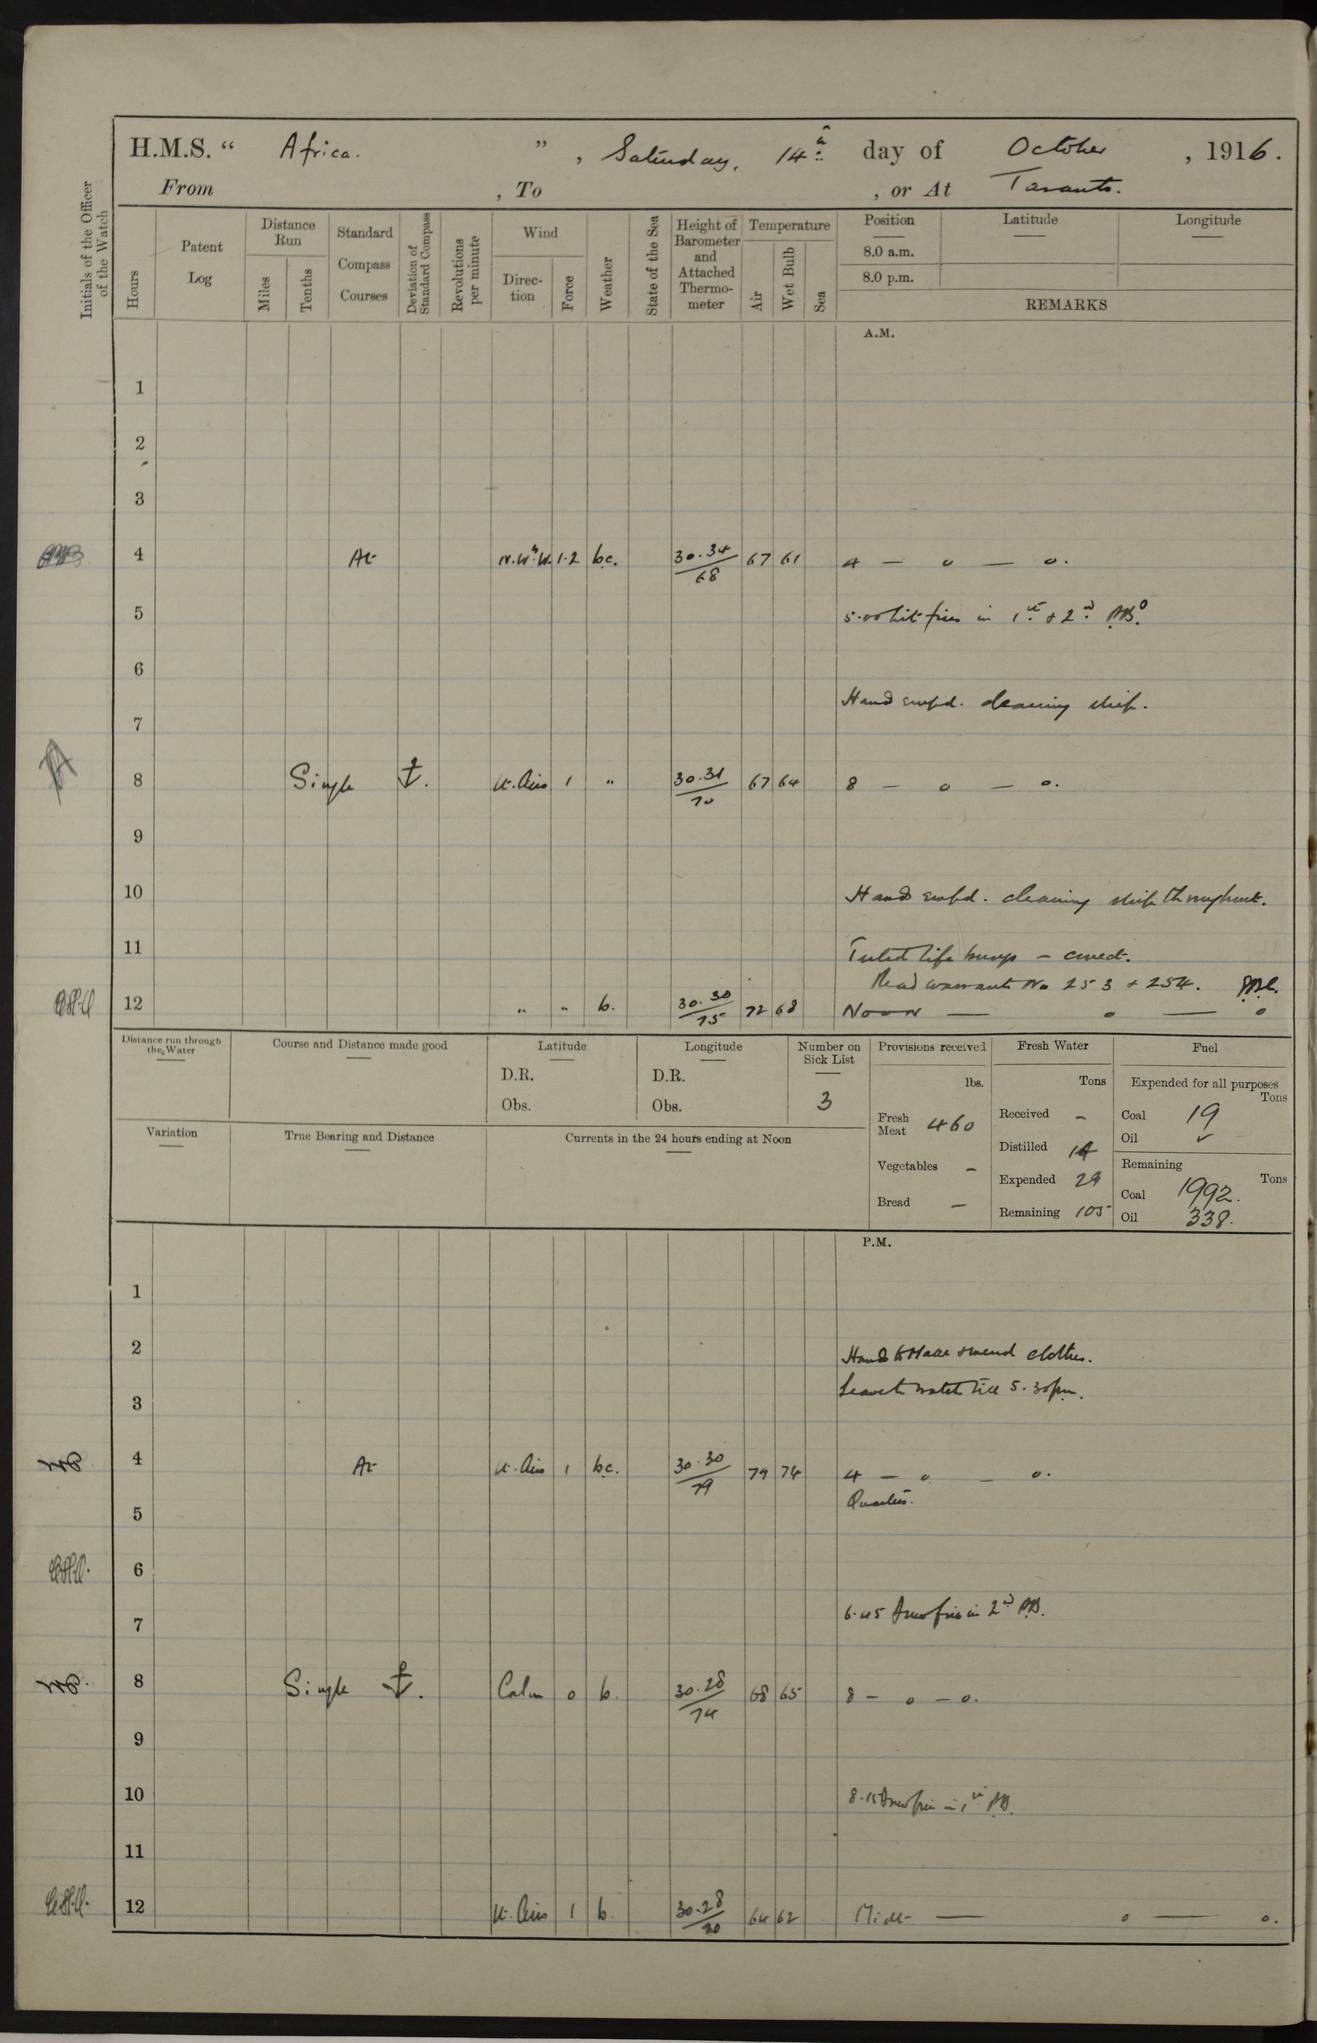 H.M.S. “ Africa. ” , Saturday, 14th day of October , 1916.
From , To , or At Taranto.
Initials of the Officer of the Watch
Hours
Patent Log
Distance Run
Miles
Tenths
Standard Compass Courses
Deviation of Standard Compass
Revolutions per minute
Wind
Direction
Force
Weather
State of the Sea
Height of Barometer and Attached Thermometer
Temperature
Air
Wet Bulb
Sea
Position Latitude Longitude
8.0 a.m.
8.0 p.m.
REMARKS
A.M.
1
2
3
4 At N.W.W. 1.2 bc. 30.34/68 67 61 4 — o — o.
5 5.00 Lit fires in 1st & 2nd P.B.
6
Hands empd. cleaning ship.
7
8 Single Lt. Airs 1 " 30.31/70 67 64 8 — o — o.
9
10 Hands empd. cleaning ship throughout.
11 Tested life buoys – correct.
Read warrants No 253 + 254.
12 " " b. 30.30/75 72 68 Noon — o — o
Distance run through the Water
Course and Distance made good
Latitude
D.R.
Obs.
Longitude
D.R.
Obs.
Number on Sick List
3
Provisions received
lbs.
Fresh Meat 460
Vegetables –
Bread –
Fresh Water
Tons
Received –
Distilled 14
Expended 29
Remaining 105
Fuel
Expended for all purposes
Tons
Coal 19
Oil ✓
Remaining
Tons
Coal 1992.
Oil 338.
Variation
True Bearing and Distance
Currents in the 24 hours ending at Noon
P.M.
1
2 Hands to Make & mend clothes.
Leave to watch till 5.30pm.
3
4 At Lt. Airs 1 bc. 30.30/79 79 74 4 — o — o.
Quarters.
5
6
6.45 Drew fires in 2nd P.B.
7
8 Single Calm 0 b. 30.28/74 68 65 8 — o — o.
9
10 8.15 Drew fires in 1st P.B.
11
12 Lt. Airs 1 b. 30.28/70 64 62 Midt. — o — o.